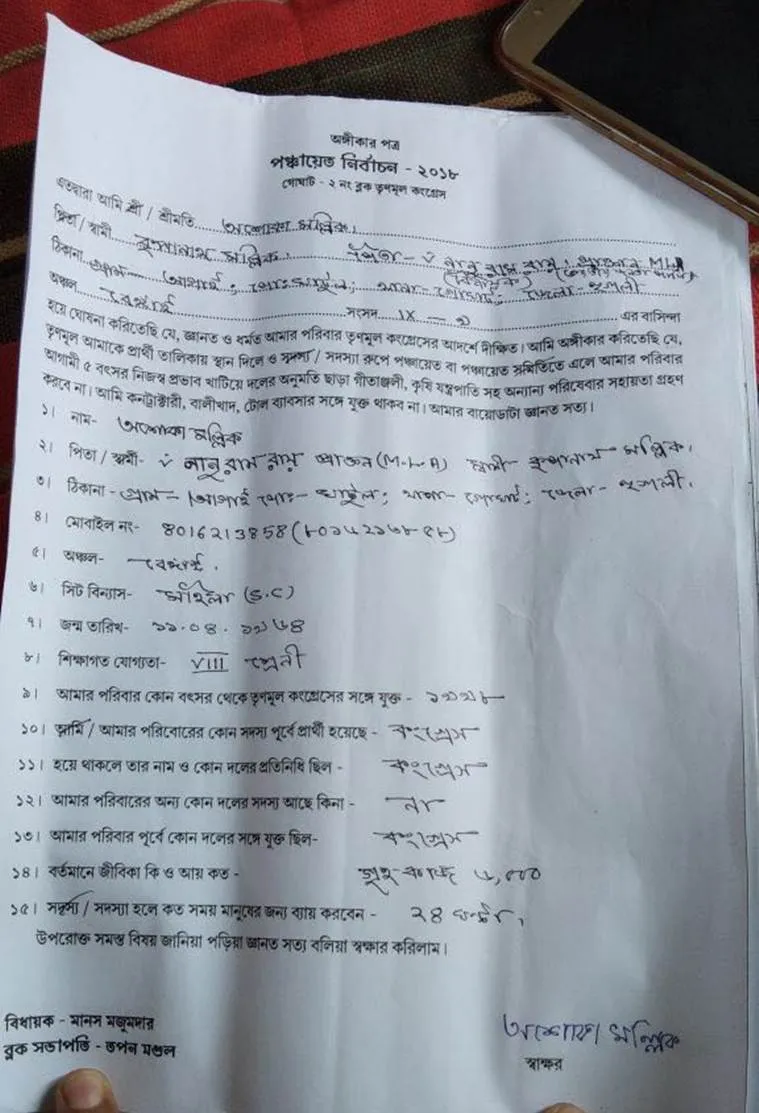 অঙ্গীকার পত্র
পঞ্চায়েত নির্বাচন - ২০১৮
গোঘাট - ২ নং ব্লক তৃণমূল কংগ্রেস
এতদ্বারা আমি শ্রী / শ্রীমতি..... অশোকা মল্লিক।
পিতা / স্বামী..... কৃপানাথ মল্লিক। পিতা - ৺ নানু রাম রায়। প্রাক্তন MLA
ঠিকানা - গ্রাম - ; থানা - গোঘাট; জেলা - হুগলী
অঞ্চল..... বেঙ্গাই ..... সংসদ..... IX - ১ ..... এর বাসিন্দা
হয়ে ঘোষনা করিতেছি যে, জ্ঞানত ও ধর্মত আমার পরিবার তৃণমূল কংগ্রেসের আদর্শে দীক্ষিত। আমি অঙ্গীকার করিতেছি যে,
তৃণমূল আমাকে প্রার্থী তালিকায় স্থান দিলে ও সদস্য / সদস্যা রুপে পঞ্চায়েত বা পঞ্চায়েত সমিতিতে এলে আমার পরিবার
আগামী ৫ বৎসর নিজস্ব প্রভাব খাটিয়ে দলের অনুমতি ছাড়া গীতাঞ্জলী, কৃষি যন্ত্রপাতি সহ অন্যান্য পরিষেবার সহায়তা গ্রহণ
করবে না। আমি কনট্রাক্টারী, বালীখাদ, টোল ব্যাবসার সঙ্গে যুক্ত থাকব না। আমার বায়োডাটা জ্ঞানত সত্য।
১। নাম- অশোকা মল্লিক
২। পিতা / স্বামী- ৺ নানু রাম রায় প্রাক্তন (M.L.A) স্বামী কৃপানাথ মল্লিক।
৩। ঠিকানা - গ্রাম - পোঃ- ; থানা- গোঘাট; জেলা - হুগলী।
৪। মোবাইল নং- 8016213858 (৮০১৬২১৩৮৫৮)
৫। অঞ্চল- বেঙ্গাই.
৬। সিট বিন্যাস- মহিলা (S.C)
৭। জন্ম তারিখ- ১১.০৪.১৯৬৪
৮। শিক্ষাগত যোগ্যতা- VIII শ্রেনী
৯। আমার পরিবার কোন বৎসর থেকে তৃণমূল কংগ্রেসের সঙ্গে যুক্ত - ১৯৯৮
১০। আমি / আমার পরিবারের কোন সদস্য পূর্বে প্রার্থী হয়েছে - কংগ্রেস
১১। হয়ে থাকলে তার নাম ও কোন দলের প্রতিনিধি ছিল - কংগ্রেস
১২। আমার পরিবারের অন্য কোন দলের সদস্য আছে কিনা - না
১৩। আমার পরিবার পূর্বে কোন দলের সঙ্গে যুক্ত ছিল- কংগ্রেস
১৪। বর্তমানে জীবিকা কি ও আয় কত - গৃহ কাজ ৬,০০০
১৫। সদস্য / সদস্যা হলে কত সময় মানুষের জন্য ব্যায় করবেন - ২৪ ঘন্টা,
উপরোক্ত সমস্ত বিষয় জানিয়া পড়িয়া জ্ঞানত সত্য বলিয়া স্বক্ষার করিলাম।
বিধায়ক - মানস মজুমদার
ব্লক সভাপতি - তপন মণ্ডল
অশোকা মল্লিক
স্বাক্ষর